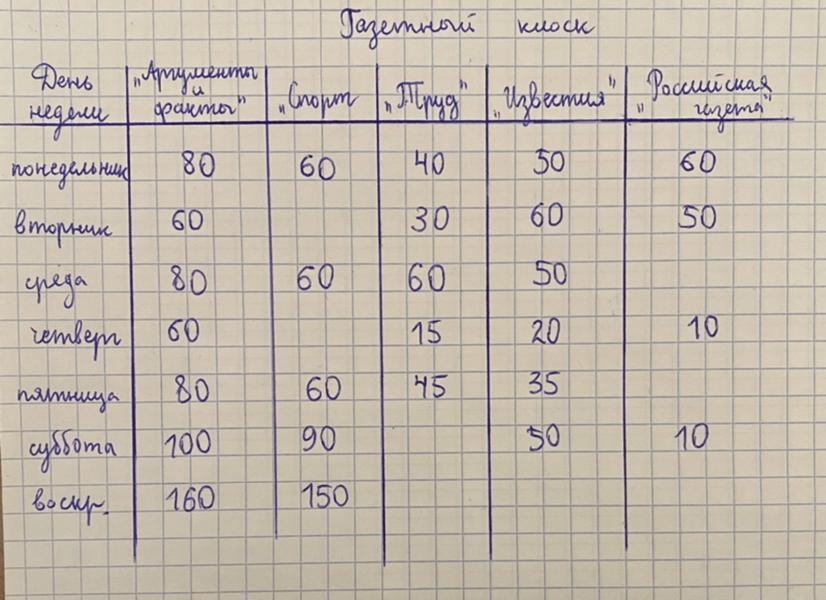 Газетный киоск
День недели "Аргументы и факты" "Спорт "Труд" "Известия" "Российская газета"
понедельник 80 60 40 50 60
вторник 60 30 60 50
среда 80 60 60 50
четверг 60 15 20 10
пятница 80 60 45 35
суббота 100 90 50 10
воскр. 160 150